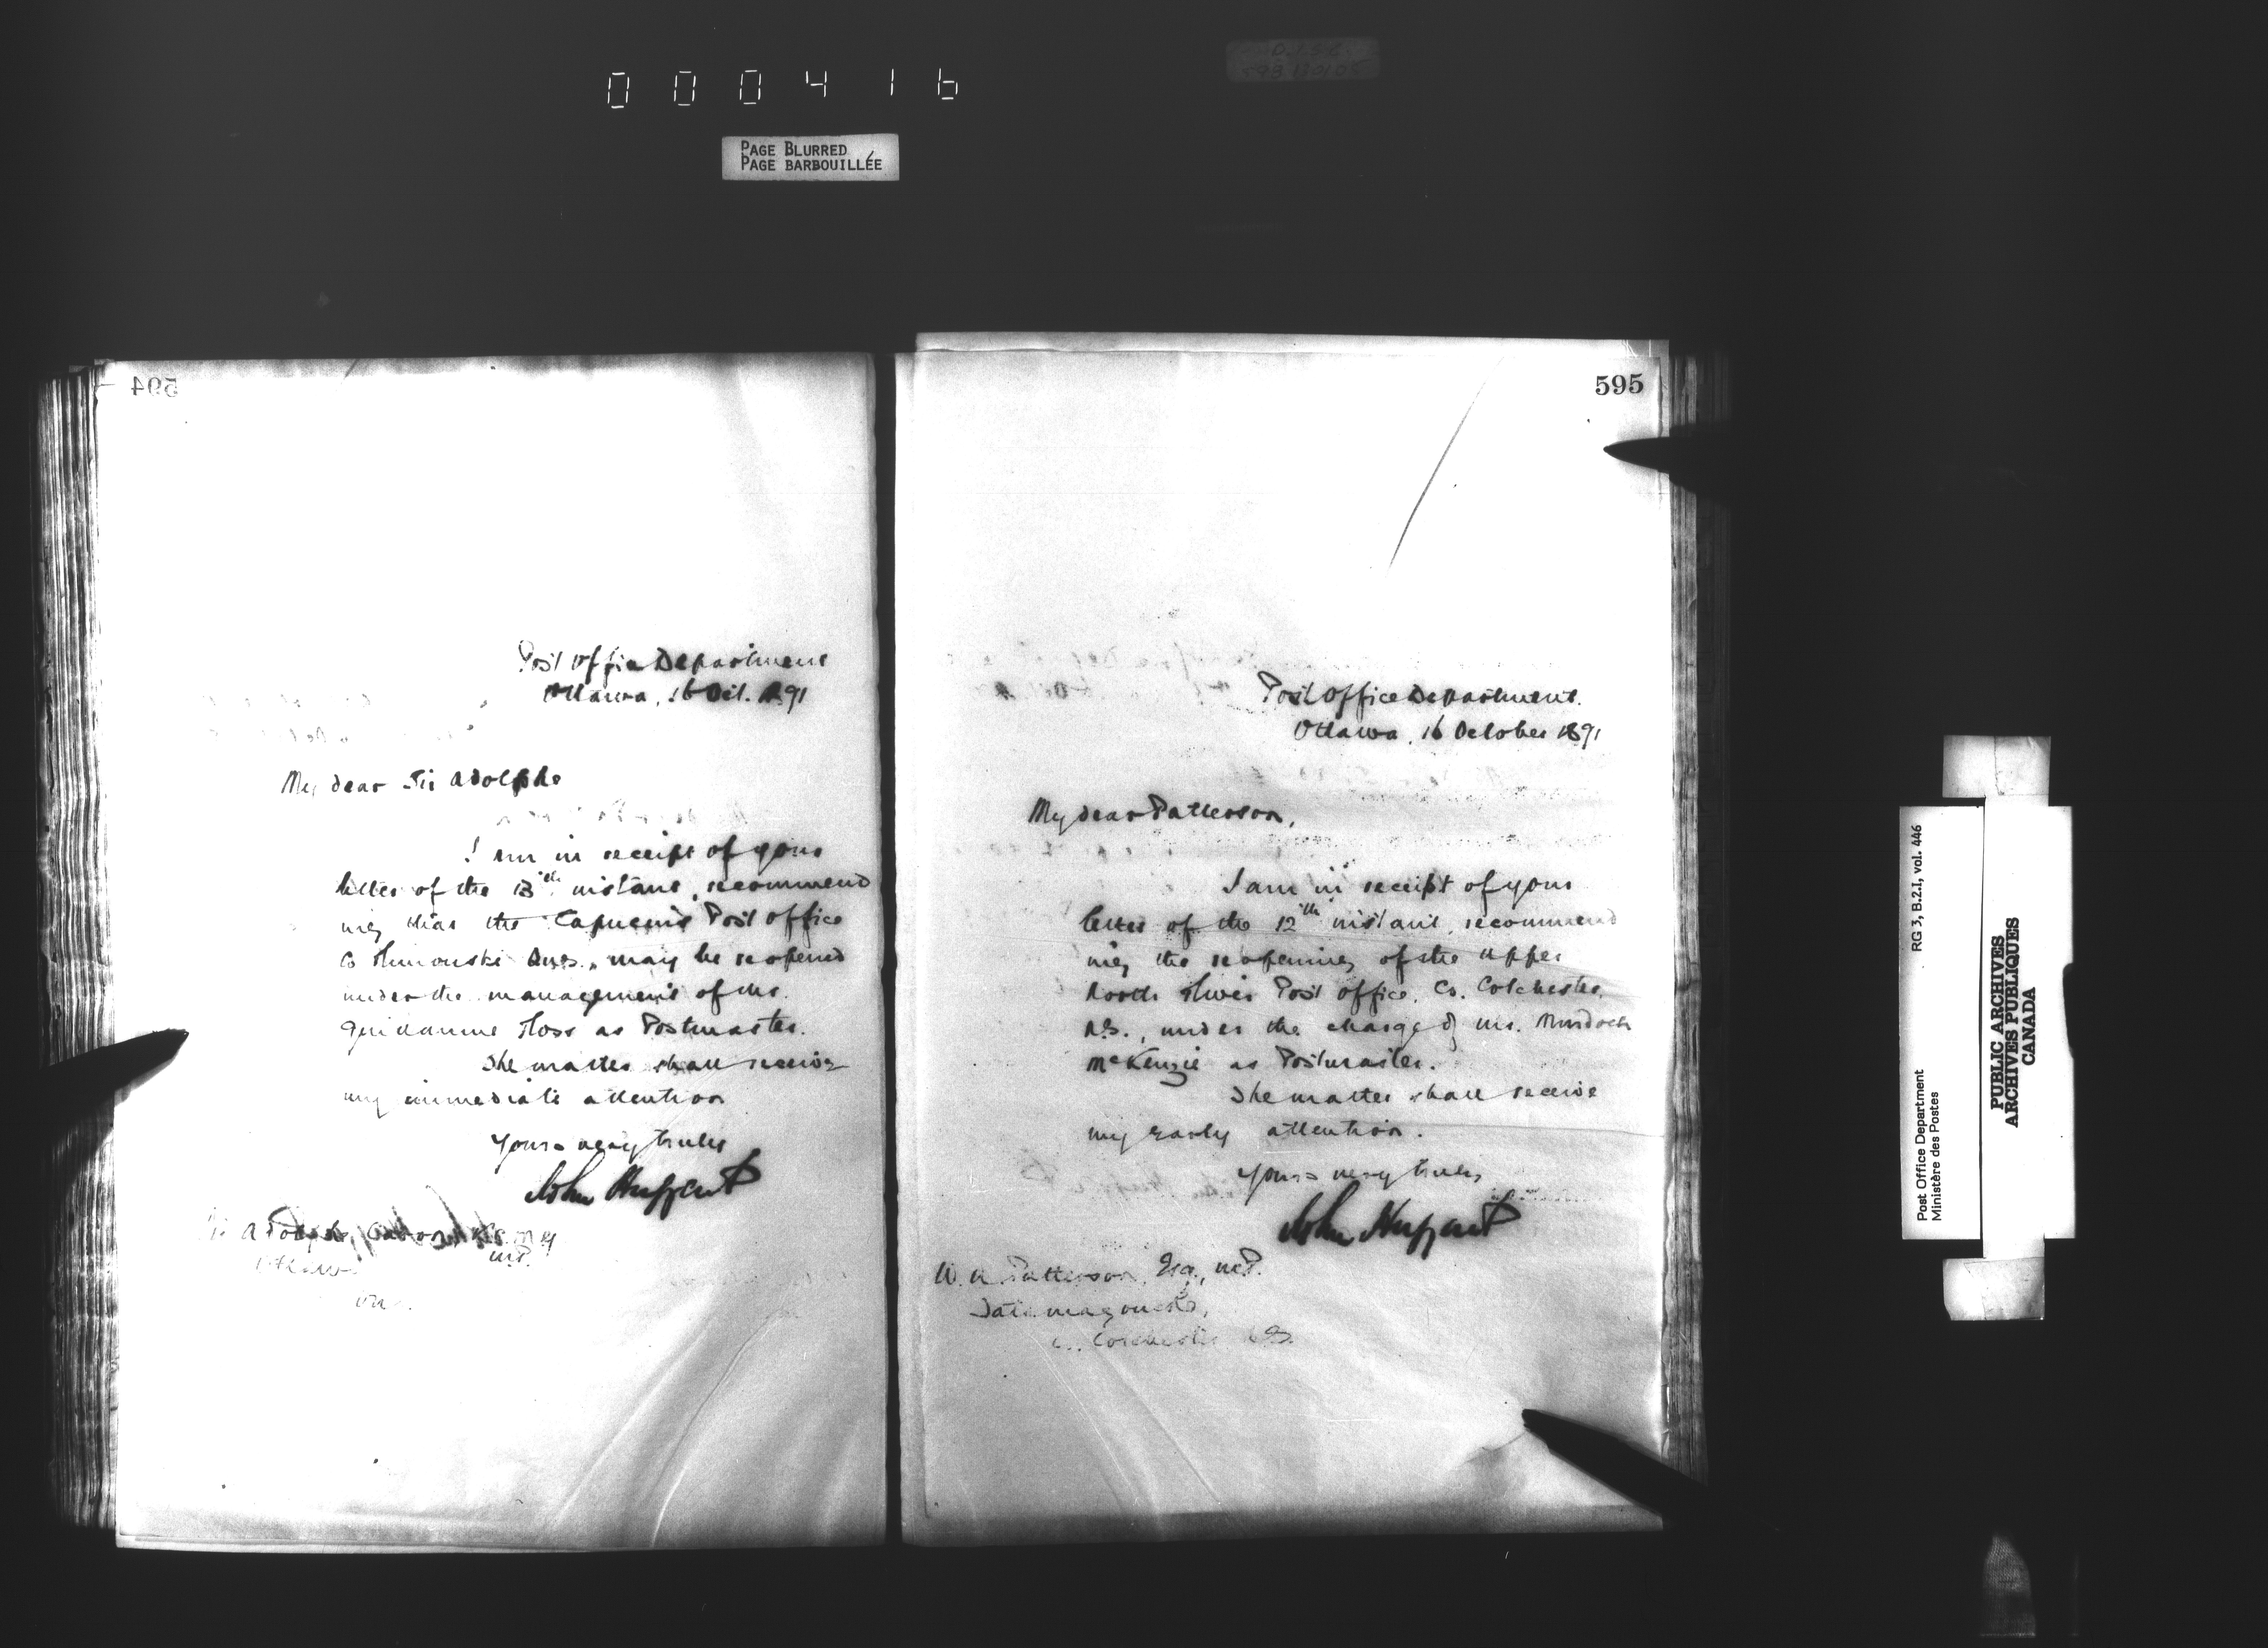 000416
PAGE BLURRED
PAGE BARBOUILLÉE
594
Post Office Department
Ottawa, 16 Oct. 1891
My dear Sir Adolphe
I am in receipt of your
letter of the 13th instant, recommend
ing that the Capucins Post Office
Co Rimouski Que., may be reopened
under the management of Mr.
Guillaume Ross as Postmaster.
The matter shall receive
my immediate attention
Yours very truly
John Haggart
Sir Adolphe Caron K.C.M.G
M.P.
Ottawa
Ont.
595
Post Office Department.
Ottawa, 16 October 1891
My dear Patterson,
I am in receipt of your
letter of the 12th instant, recommend
ing the reopening of the Upper
North River Post Office, Co. Colchester,
N.S., under the charge of Mr. Murdoch
McKenzie as Postmaster.
The matter shall receive
my early attention.
Yours very truly,
John Haggart
W. A. Patterson, Esq., M.P.
Tatamagouche,
Co. Colchester N.S.
RG 3, B.2.I, vol. 446
Post Office Department
Ministère des Postes
PUBLIC ARCHIVES
ARCHIVES PUBLIQUES
CANADA